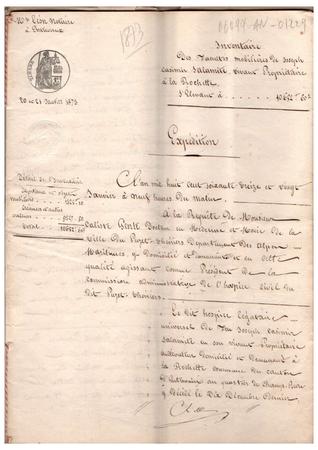 Me Léon Notaire
à Entrevaux
1873
06099-AN-01229
20 et 21 Janvier 1873
Inventaire
Des Facultés mobilières de Joseph
Casimir Salamite vivant Propriétaire
à la Rochette.
S'élevant à . . . . . . . 10652=60c
Expédition
Détail de l'Inventaire
mobiliers
Total . . . . . 10652=60
L'an mil huit cent soixante treize et vingt
Janvier à neuf heures du matin.
A la Requête de Monsieur
Docteur en Médecine et Maire de la
Ville du Puget-Théniers Département des Alpes-
Maritimes, y Domicilié et Demeurant et en cette
qualité agissant comme Président de la
commission administrative de l'hospice civil du
Dit Puget-Théniers.
Le dit hospice légataire
universel de feu Joseph Casimir
Salamite en son vivant Propriétaire
cultivateur Domicilié et Demeurant à
la Rochette commune du canton
d'Entrevaux au quartier de
y Décédé le Dix Décembre Dernier.